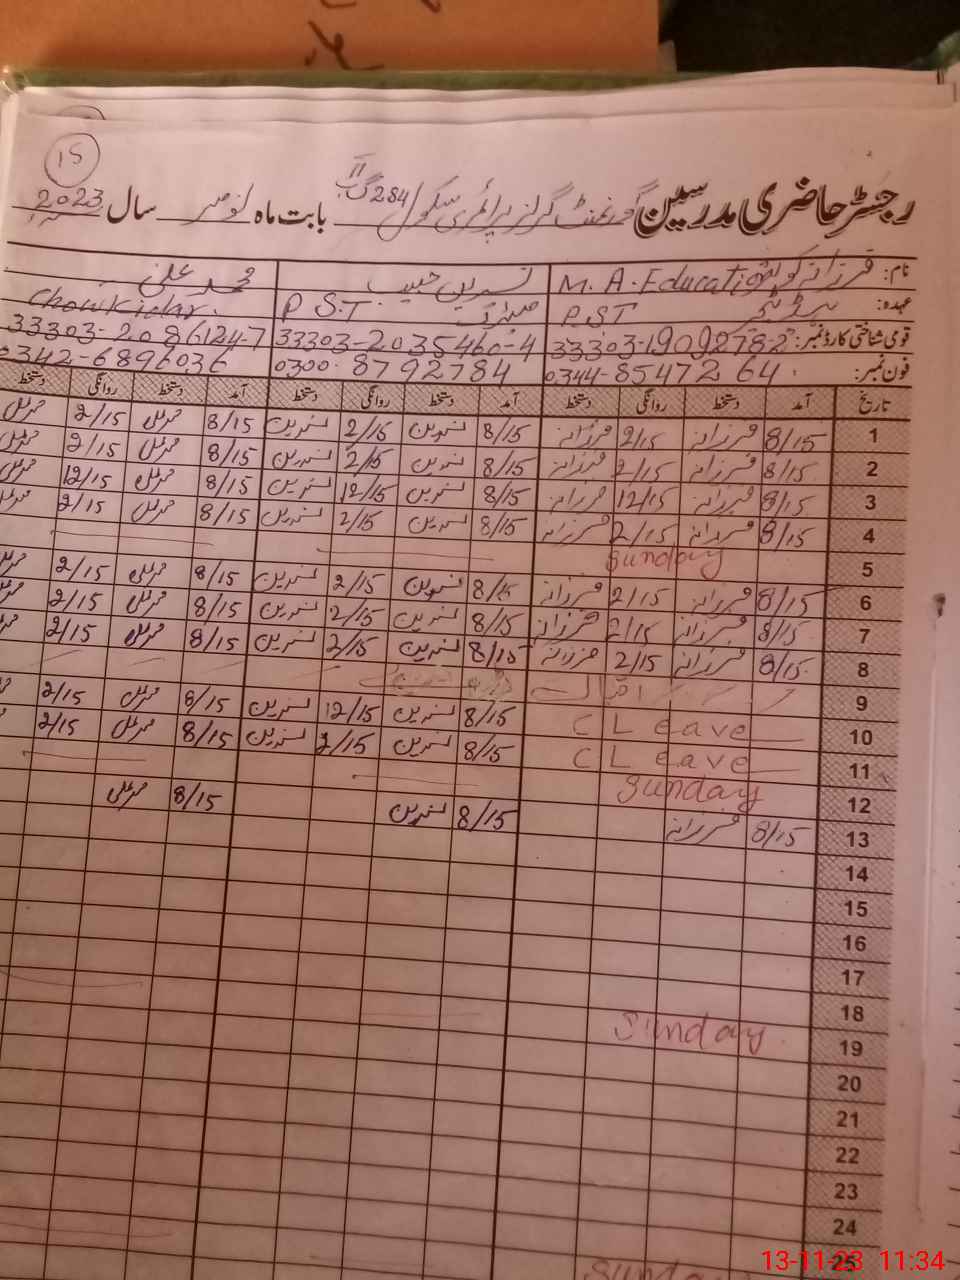 15
رجسٹر حاضری مدرسین گورنمنٹ گرلز پرائمری سکول 284 گ ب II بابت ماہ نومبر سال 2023
نام: فرزانہ کوثر M.A. Education نسرین حبیب محمد علی
عہدہ: P.ST میٹرک P.S.T Chowkidar.
قومی شناختی کارڈ نمبر: 33303-1909278-2 33303-2035460-4 33303-2086124-7
فون نمبر: 0344-8547264 0300-8792784 0342-6896036
تاریخ آمد دستخط روانگی دستخط آمد دستخط روانگی دستخط آمد دستخط روانگی دستخط
1 8/15 فرزانہ 2/15 فرزانہ 8/15 نسرین 2/15 نسرین 8/15 محمد علی 2/15 محمد علی
2 8/15 فرزانہ 2/15 فرزانہ 8/15 نسرین 2/15 نسرین 8/15 محمد علی 2/15 محمد علی
3 8/15 فرزانہ 12/15 فرزانہ 8/15 نسرین 12/15 نسرین 8/15 محمد علی 12/15 محمد علی
4 8/15 فرزانہ 2/15 فرزانہ 8/15 نسرین 2/15 نسرین 8/15 محمد علی 2/15 محمد علی
5 Sunday
6 8/15 فرزانہ 2/15 فرزانہ 8/15 نسرین 2/15 نسرین 8/15 محمد علی 2/15 محمد علی
7 8/15 فرزانہ 2/15 فرزانہ 8/15 نسرین 2/15 نسرین 8/15 محمد علی 2/15 محمد علی
8 8/15 فرزانہ 2/15 فرزانہ 8/15 نسرین 2/15 نسرین 8/15 محمد علی 2/15 محمد علی
9 اقبال
10 C Leave 8/15 نسرین 12/15 نسرین 8/15 محمد علی 2/15
11 C Leave 8/15 نسرین 2/15 نسرین 8/15 محمد علی 2/15
12 Sunday
13 8/15 فرزانہ 8/15 نسرین 8/15 محمد علی
14
15
16
17
18
19 Sunday
20
21
22
23
24
25
Sunday
13-11-23 11:34